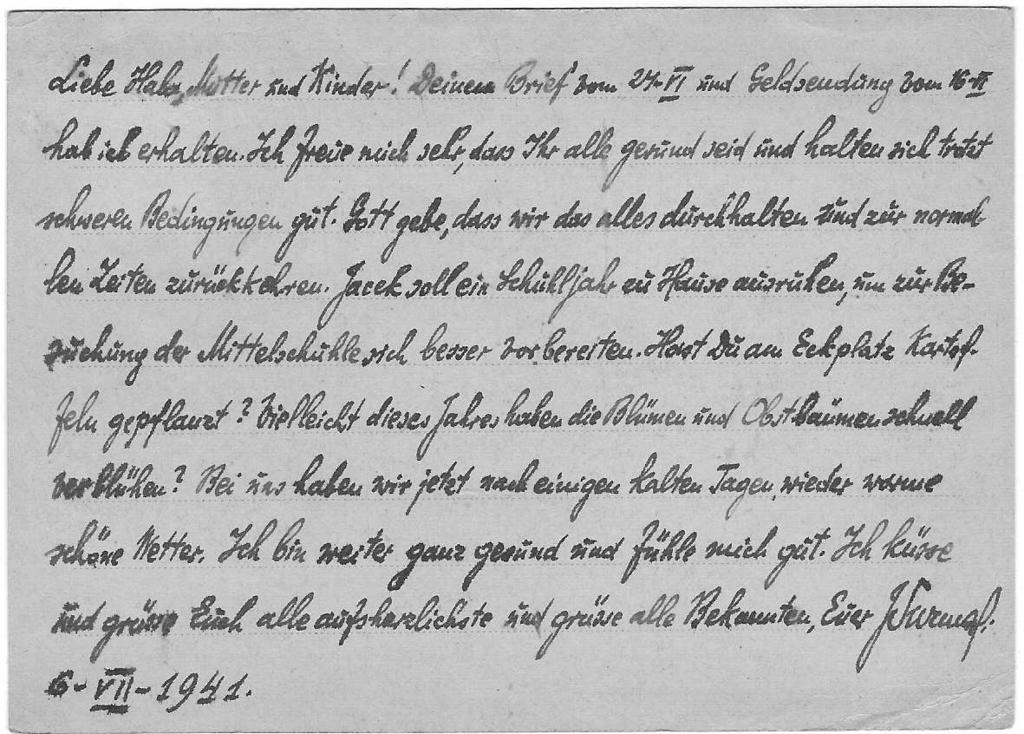 Liebe Hala, Mutter und Kinder! Deinem Brief vom 24-VI und Geldsendung vom 16-VI
hab ich erhalten. Ich freue mich sehr, dass Ihr alle gesund seid und halten sich trotzt
schweren Bedingungen gut. Gott gebe, dass wir das alles durchhalten und zur normal-
len Zeiten zurückkehren. Jacek soll ein Schuhljahr zu Hause ausruhen, um zur Be-
suchung der Mittelschuhle sich besser vorbereiten. Hast Du am Eckplatz Kartof-
feln gepflanzt? Vielleicht dieses Jahres haben die Blümen und Obstbäumen schnell
verblühen? Bei uns haben wir jetzt nach einigen kalten Tagen, wieder warme
schöne Wetter. Ich bin weiter ganz gesund und fühle mich gut. Ich küsse
und grüsse Euch alle aufsherzlichste und grüsse alle Bekannten, Euer
6-VII-1941.